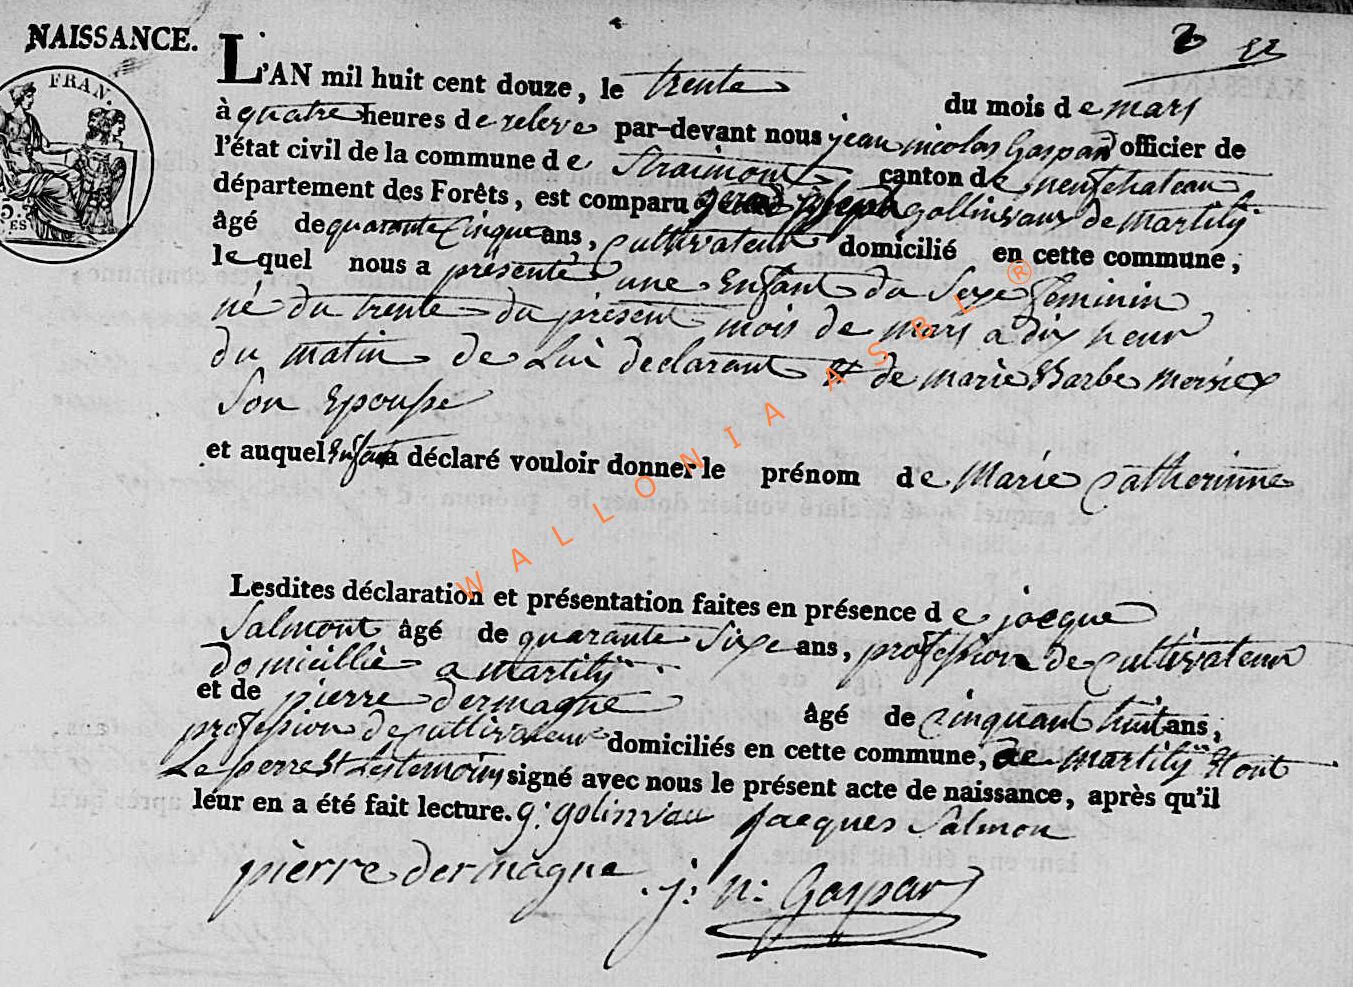 NAISSANCE.
FRAN.
L'AN mil huit cent douze, le trente du mois de mars
à quatre heures de releve par-devant nous jean nicolas Gaspard officier de
l'état civil de la commune de Straimont canton de neufchateau
département des Forêts, est comparu gerard joseph gollinvaux de Martilÿ
âgé de quaronte Cinque ans, cultivateur domicilié en cette commune,
lequel nous a présenté une Enfant du Sexe feminin
né du trente du présent mois de mars a dix heur
du matin de Lui declarant Et de marie Barbe
Son Epousse
et auquel Enfant a déclaré vouloir donner le prénom de Marie Catherinne
Lesdites déclaration et présentation faites en présence de jacque
Salmont âgé de quarante Sixe ans, profession de cultivateur
domicillié a Martilÿ
et de pierre dermagne âgé de cinquant huit ans,
profession de cultivateur domiciliés en cette commune, de Martilÿ Et ont
Le perre Et Les temoins signé avec nous le présent acte de naissance, après qu'il
leur en a été fait lecture. g: golinvau jacques Salmon
pierre dermagne j: n: Gaspar
WALLONIA ASBL ®